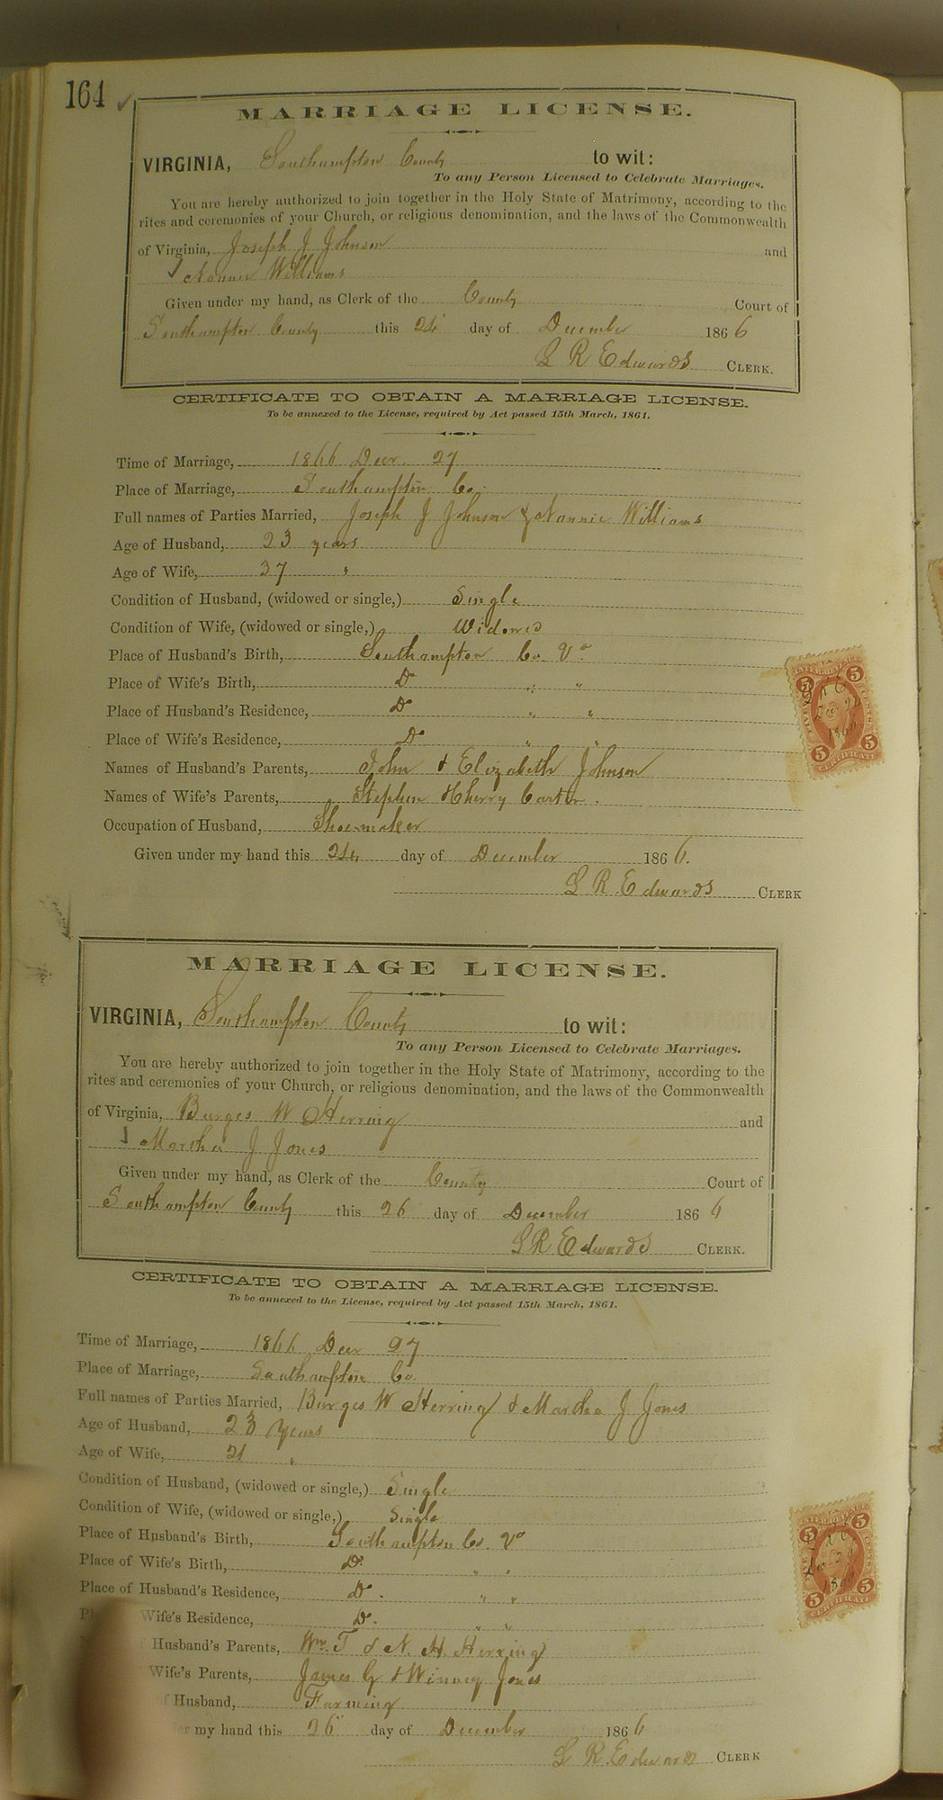 164
MARRIAGE LICENSE.
VIRGINIA, Southampton County to wit:
To any Person Licensed to Celebrate Marriages.
You are hereby authorized to join together in the Holy State of Matrimony, according to the
rites and ceremonies of your Church, or religious denomination, and the laws of the Commonwealth
of Virginia, Joseph J Johnson and
Nannie Williams
Given under my hand, as Clerk of the County Court of
Southampton County this 24 day of December 1866
L R Edwards CLERK.
CERTIFICATE TO OBTAIN A MARRIAGE LICENSE.
To be annexed to the License, required by Act passed 15th March, 1861.
Time of Marriage, 1866 Decr. 27
Place of Marriage, Southampton Co.
Full names of Parties Married, Joseph J Johnson & Nannie Williams
Age of Husband, 23 years
Age of Wife, 37 "
Condition of Husband, (widowed or single,) Single
Condition of Wife, (widowed or single,) Widowed
Place of Husband's Birth, Southampton Co. Va
Place of Wife's Birth, Do " "
Place of Husband's Residence, Do " "
Place of Wife's Residence, Do " "
Names of Husband's Parents, John & Elizabeth Johnson
Names of Wife's Parents, Stephen & Cherry Carter.
Occupation of Husband, Shoemaker
Given under my hand this 24 day of December 1866.
L R Edwards CLERK
MARRIAGE LICENSE.
VIRGINIA, Southampton County to wit:
To any Person Licensed to Celebrate Marriages.
You are hereby authorized to join together in the Holy State of Matrimony, according to the
rites and ceremonies of your Church, or religious denomination, and the laws of the Commonwealth
of Virginia, Burges W Herring and
Martha J Jones
Given under my hand, as Clerk of the County Court of
Southampton County this 26 day of December 1866
L R Edwards CLERK.
CERTIFICATE TO OBTAIN A MARRIAGE LICENSE.
To be annexed to the License, required by Act passed 15th March, 1861.
Time of Marriage, 1866 Decr 27
Place of Marriage, Southampton Co.
Full names of Parties Married, Burges W Herring & Martha J Jones
Age of Husband, 23 years
Age of Wife, 21 "
Condition of Husband, (widowed or single,) Single
Condition of Wife, (widowed or single,) Single
Place of Husband's Birth, Southampton Co. Va
Place of Wife's Birth, Do " "
Place of Husband's Residence, Do. " "
Wife's Residence, Do. " "
Husband's Parents, Wm. T & N. H. Herring
Wife's Parents, James G & Winney Jones
Husband, Farming
my hand this 26 day of December 1866
L R Edwards CLERK